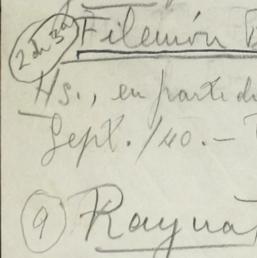 2 de 3a
Filemón
Hs., en parte
Sept. /40.-
9 Rayna